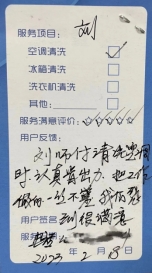 服务项目： 刘
空调清洗 ✓
冰箱清洗
洗衣机清洗
其他：
服务满意评价：☆☆☆☆☆
用户反馈：
刘师付清洗空调
时认真肯出力，把工作
做的一丝不
用户签名 到很满意
服务
2023 2 8日